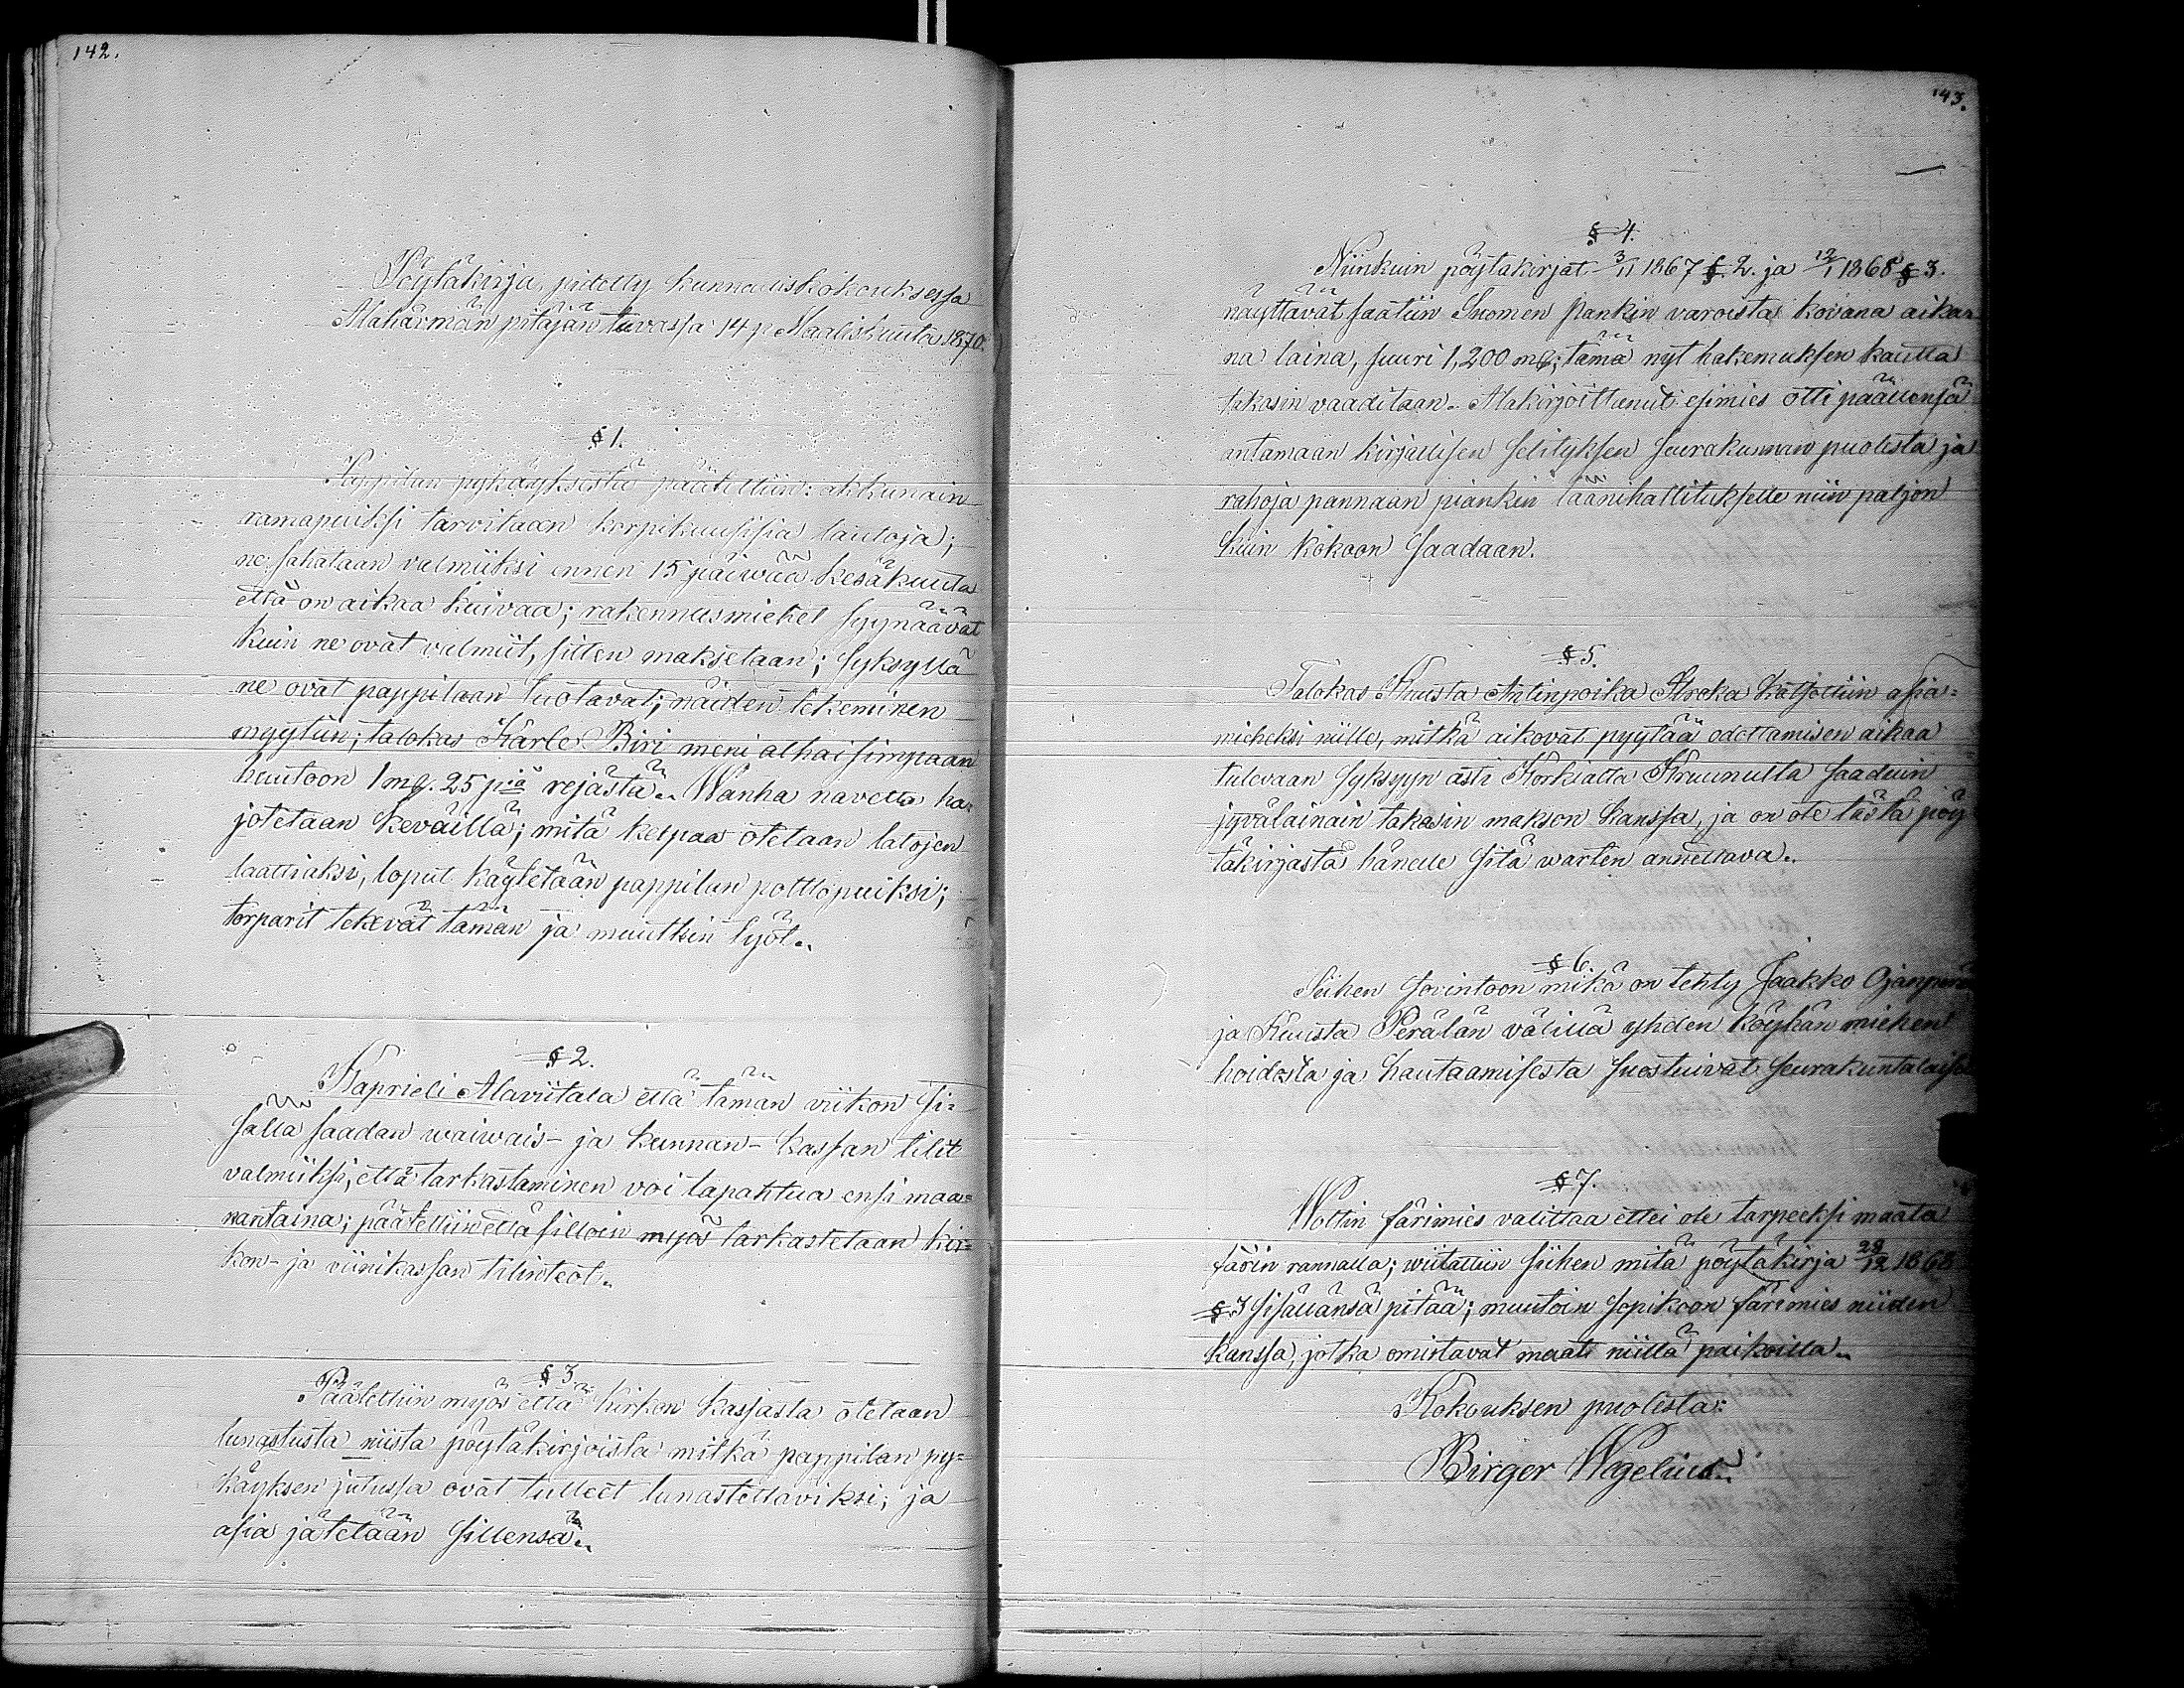 142.
Pöytäkirja, pidetty kunnalliskokouksessa
Alahärmän pitäjän tuvassa 14 p. Maaliskuuta 1870.
§ 1.
Pappilan pykäyksestä päätettiin: akkunain
ramapuiksi tarvitaan korpikuusisia lautoja;
ne sahataan valmiiksi ennen 15 päiwää Kesäkuuta
että on aikaa kuivaa; rakennusmiehet syynäävät
kuin ne ovat valmiit, sitten maksetaan; syksyllä
ne ovat pappilaan tuotavat; näiden tekeminen
myytiin; talokas Karle Biri meni alhaisimpaan
huutoon 1 mq. 25 piä rejästä. Wanha navetta ha-
jotetaan keväillä; mitä kelpaa otetaan latojen
laattiaksi, loput käytetään pappilan polttopuiksi;
torparit tekevät tämän ja muutkin työt.
§ 2.
Kaprieli Alaviitala että tämän viikon si-
sällä saadan waiwais- ja kunnan-kassan tilit
valmiiksi, että tarkastaminen voi tapahtua ensi maa-
nantaina; päätettiin että silloin myös tarkastetaan kir-
kon- ja viinikassan tilinteot.
§ 3
Päätettiin myös että kirkon kassasta otetaan
lunastusta niista pöytäkirjoista mitkä pappilan py-
käyksen jutussa ovat tulleet lunastettaviksi; ja
asia jätetään sillensä.
143.
§ 4.
Niinkuin pöytäkirjat 3/11 1867 § 2. ja 12/1 1868 § 3.
näyttävät saatiin Suomen pankin varoista kovana aika-
na laina, suuri 1,200 mq; tämä nyt hakemuksen kautta
takasin vaaditaan. Alakirjoittanut esimies otti päällensä
antamaan kirjallisen selityksen seurakunnan puolesta ja
rahoja pannaan piankin läänihallitukselle niin paljon
kuin kokoon saadaan.
§ 5.
Talokas Kuusta Antinpoika Kroka katsottiin asia-
mieheksi niille, mitkä aikovat pyytää odottamisen aikaa
tulevaan syksyyn asti Korkialta Kruunulta saaduin
jyvälainain takasin makson kanssa, ja on ote tästä pöy
täkirjasta hänelle sitä warten annettava.
§ 6.
Siihen sovintoon mikä on tehty Jaakko Ojanperä
ja Kuusta Perälän välillä yhden köyhän miehen
hoidosta ja hautaamisesta suostuivat seurakuntalaiset
§ 7.
Woltin färimies valittaa ettei ole tarpeeksi maata
färin rannalla; wiitattiin siihen mitä pöytäkirja 28/12 1868
§ 3 sisällänsä pitää; muutoin sopikoon färimies niiden
kanssa, jotka omistavat maat niillä paikoilla.
Kokouksen puolesta:
Birger Wegelius.